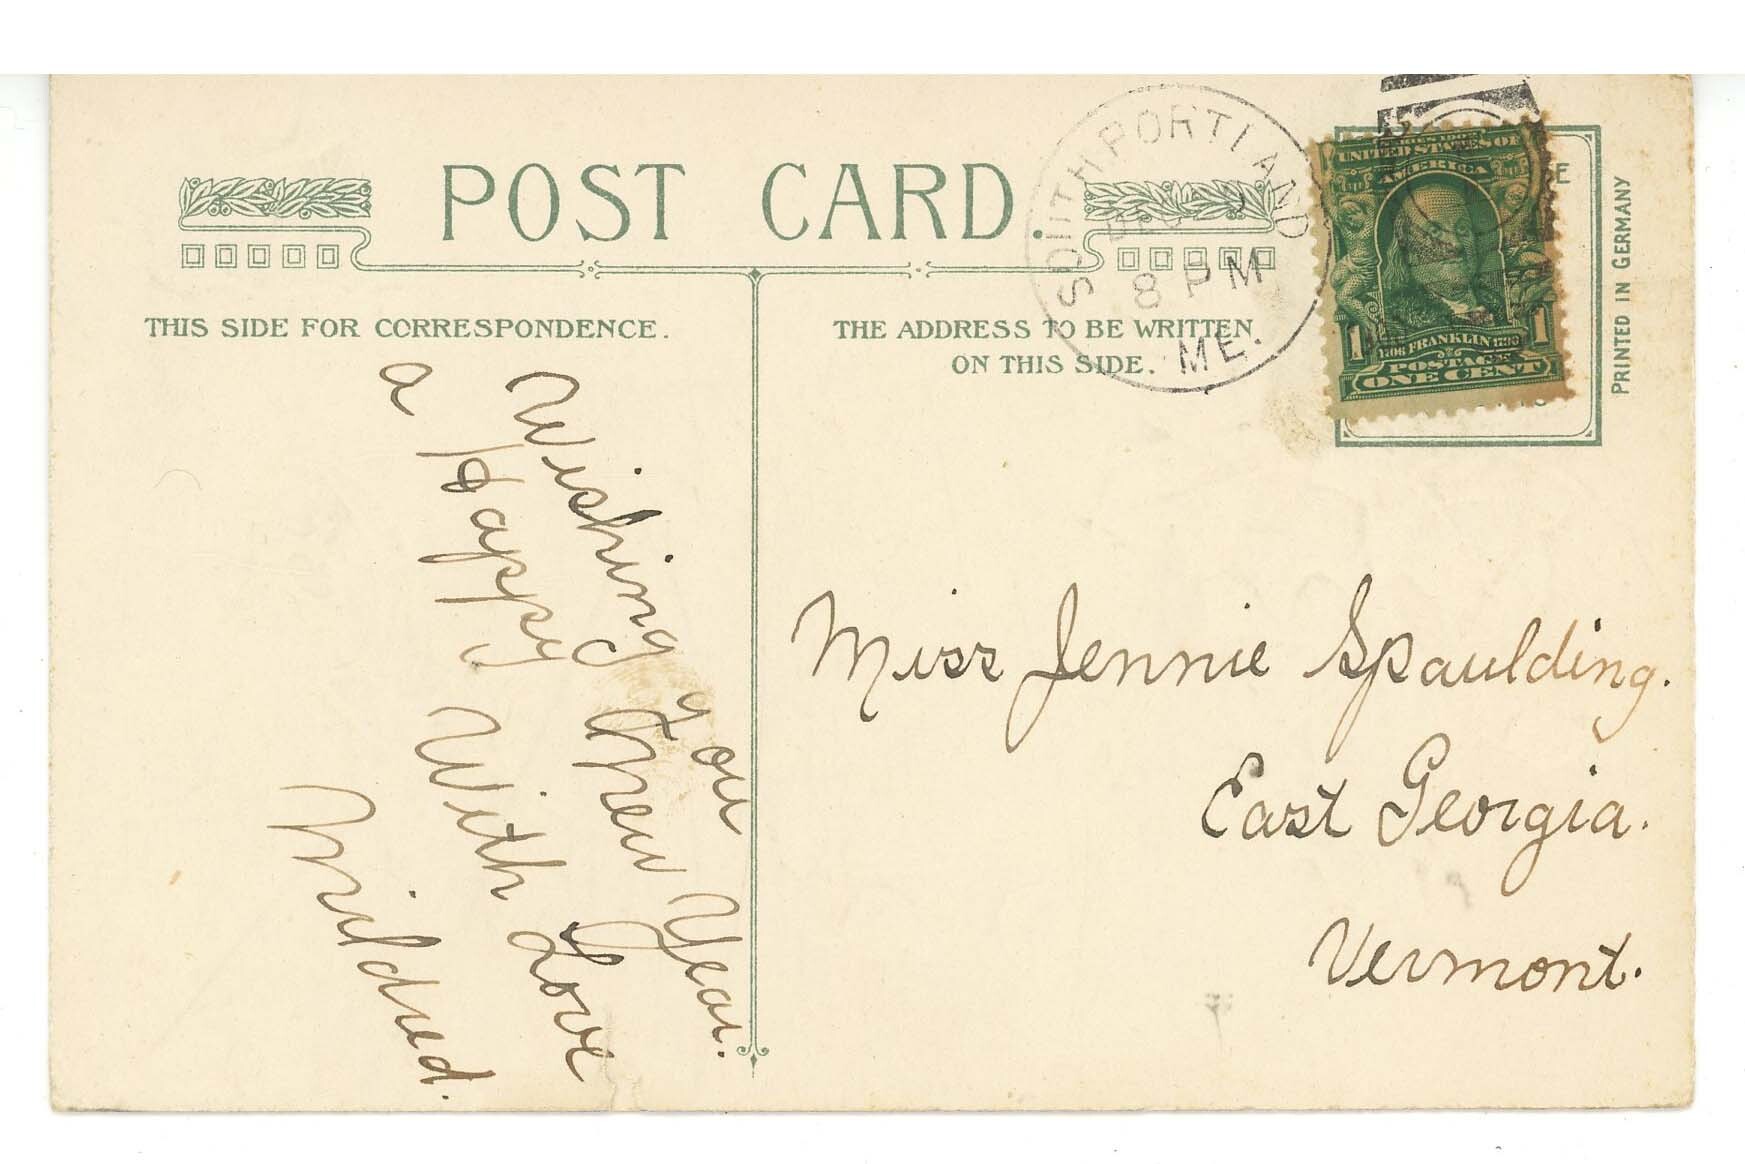 POST CARD.
THIS SIDE FOR CORRESPONDENCE.
THE ADDRESS TO BE WRITTEN
ON THIS SIDE.
SOUTH PORTLAND
DEC
8 PM
ME.
UNITED STATES OF
AMERICA
1706 FRANKLIN 1790
1 1
POSTAGE
ONE CENT
PRINTED IN GERMANY
Wishing you
a Happy New Year.
With Love
Mildred.
Miss Jennie Spaulding.
East Georgia.
Vermont.